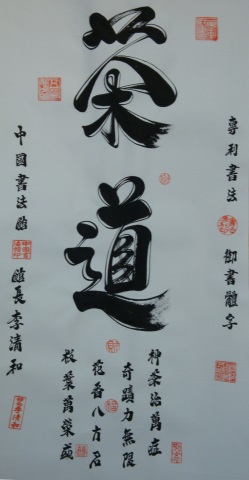 專利書法 御書體字
茶道
神茶治萬症
奇蹟力無限
花香八方名
枝葉萬盛
中國書法館 館長李清和